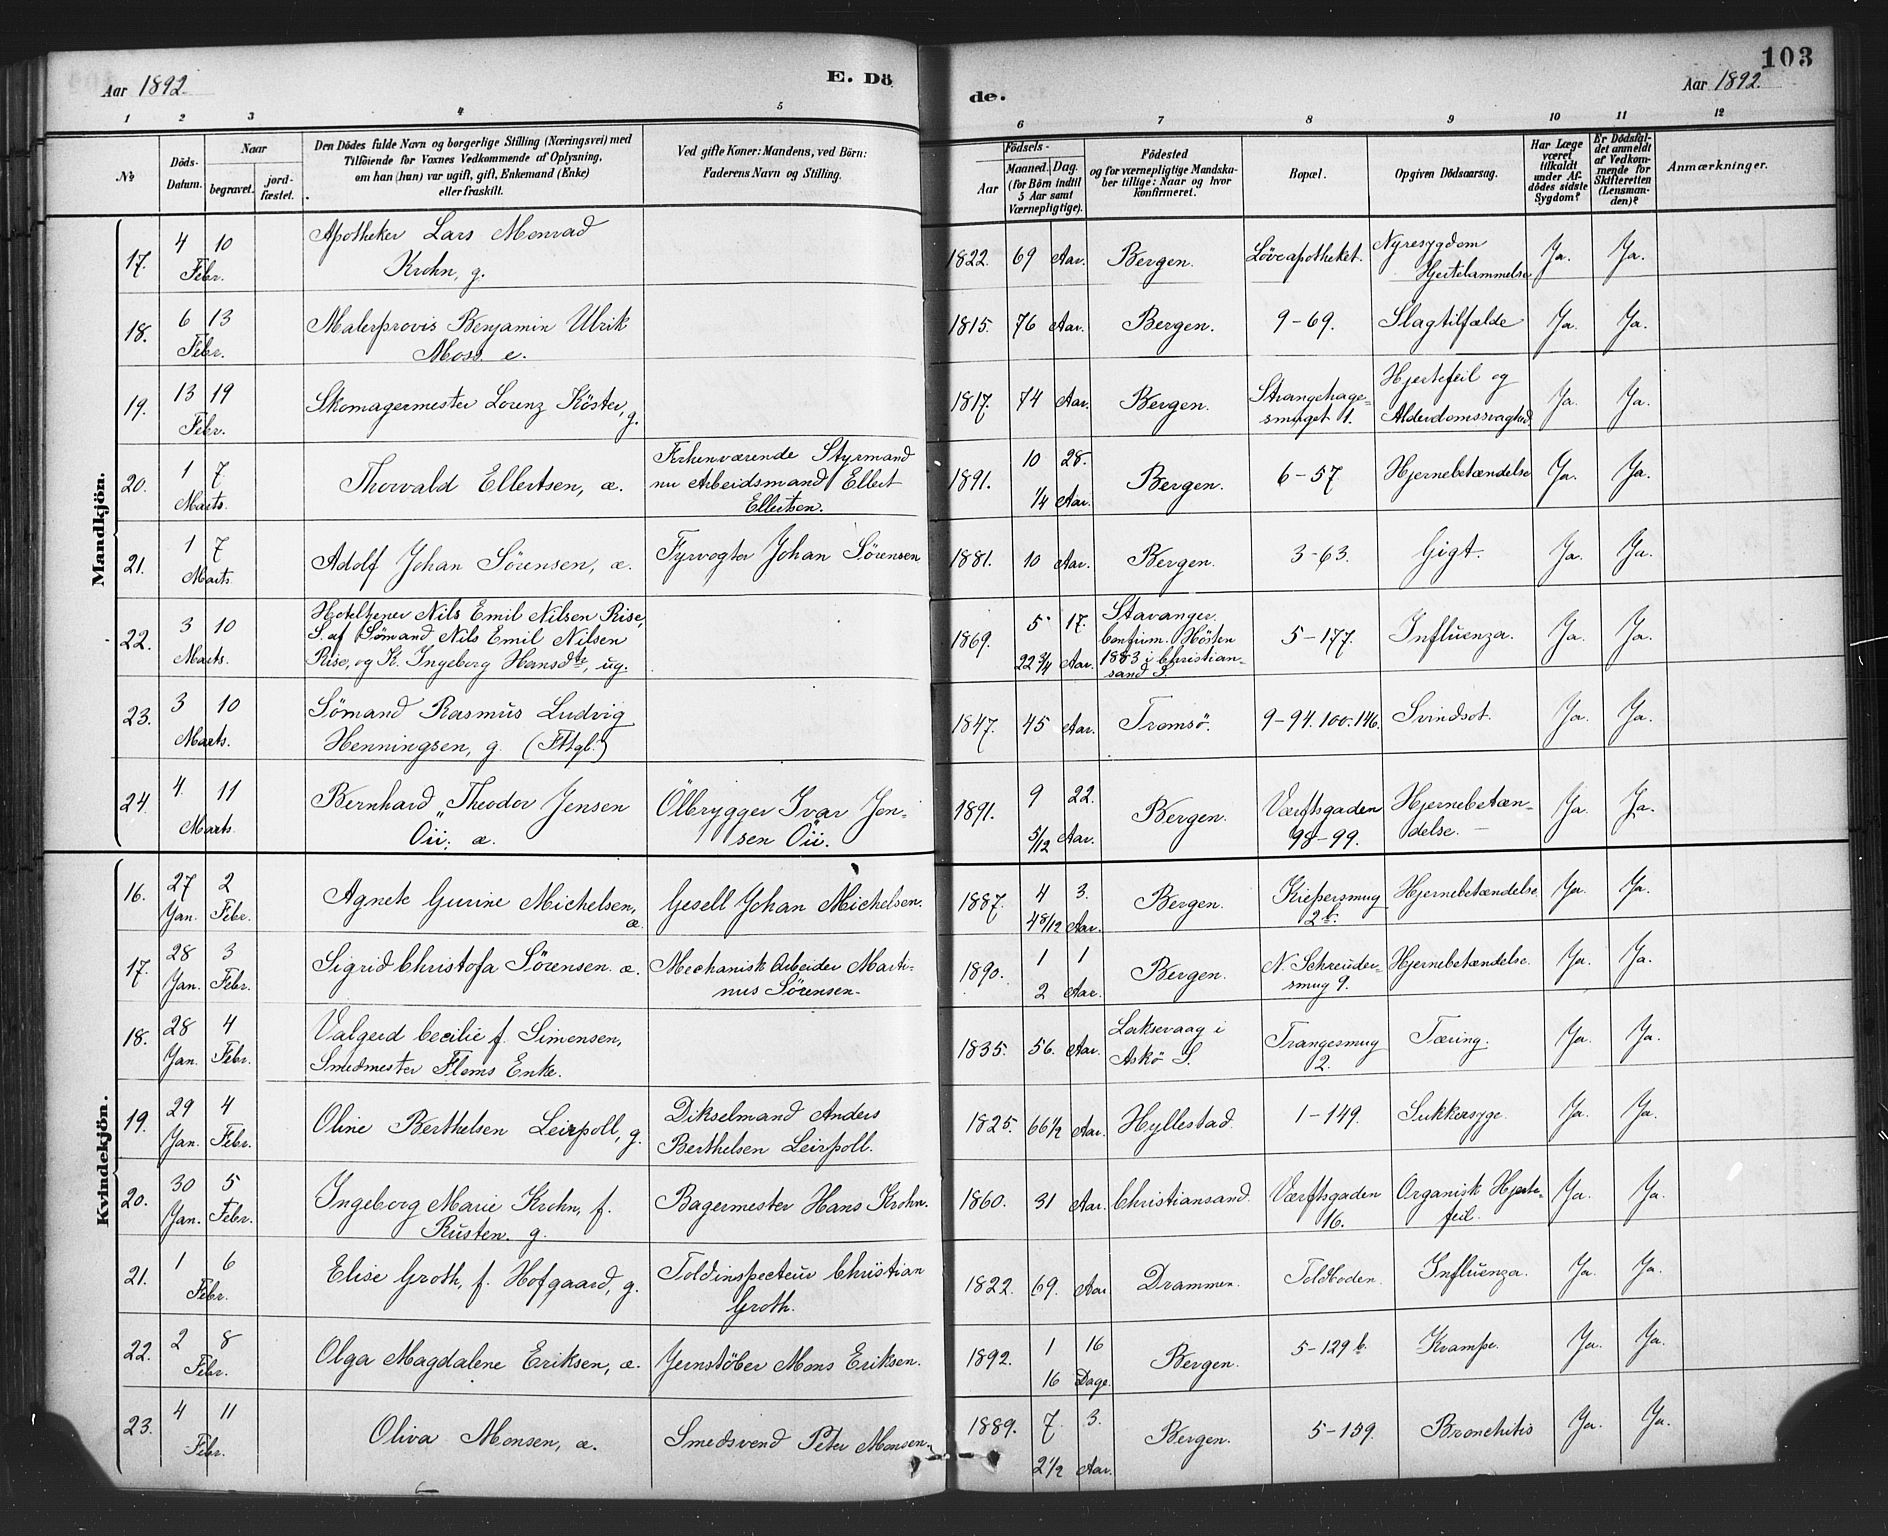 103
Aar 1892.
E. Dö
de.
Aar 1892.
1 2 3 4 5 6 7 8 9 10 11 12
№
Döds-
Datum.
Naar
begravet.
jord-
fæstet.
Den Dödes fulde Navn og borgerlige Stilling (Næringsvei) med
Tilföiende for Voxnes Vedkommende af Oplysning,
om han (hun) var ugift, gift, Enkemand (Enke)
eller fraskilt.
Ved gifte Koner: Mandens, ved Börn:
Faderens Navn og Stilling.
Födsels-
Aar
Maaned. Dag.
(for Börn indtil
5 Aar samt
Værnepligtige).
Födested
og for værnepligtige Mandska-
ber tillige: Naar og hvor
konfirmeret.
Bopæl.
Opgiven Dödsaarsag.
Har Læge
været
tilkaldt
under Af-
dödes sidste
Sygdom?
Er Dödsfal-
det anmeldt
af Vedkom-
mende for
Skifteretten
(Lensman-
den)?
Anmærkninger.
Mandkjön.
17. 4 10 Febr. Apotheker Lars Monrad
Krohn, g.
1822. 69 Aar. Bergen. Löveapotheket. Nyresygdom
Hjertelammelse Ja. Ja.
18. 6 13 Febr. Malerprovis Benjamin Ulrik
Moss. e.
1815. 76 Aar. Bergen. 9-69. Slagtilfælde Ja. Ja.
19. 13 19 Febr. Skomagermester Lorenz Köster, g.
1817. 74 Aar. Bergen. Strangehage-
smuget 1. Hjertefeil og
Alderdomssvaghed Ja. Ja.
20. 1 7 Marts. Thorvald Ellertsen, æ.
Forhenværende Styrmand
nu Arbeidsmand Ellert
Ellertsen.
1891. 10 28.
1/4 Aar. Bergen. 6-57. Hjernebetændelse Ja. Ja.
21. 1 7 Marts. Adolf Johan Sörensen, æ. Fyrvogter Johan Sörensen
1881. 10 Aar. Bergen. 3-63. Gigt. Ja. Ja.
22. 3 10 Marts. Hoteltjener Nils Emil Nilsen Rise,
S. af Sömand Nils Emil Nilsen
Rise, og K. Ingeborg Hansdtr, ug.
1869. 5 17.
22 3/4 Aar. Stavanger.
Confirm. Hösten
1883 i Christian-
sand S. 5-177. Influenza. Ja. Ja.
23. 3 10 Marts. Sömand Rasmus Ludvig
Henningsen, g.
1847. 45 Aar. Tromsö. 9-94.100-146. Svindsot. Ja. Ja.
24. 4. 11 Marts. Bernhard Theodor Jensen
Öii. æ.
Ölbrygger Ivar Jen-
sen Öii.
1891. 9 22.
5/12 Aar. Bergen. Værftsgaden
98-99. Hjernebetæn-
delse. Ja. Ja.
Kvindekjön.
16. 27 Jan. 2 Febr. Agnete Gurine Michelsen, æ. Gesell Johan Michelsen.
1887. 4 3.
4 8/12 Aar. Bergen. Kipersmug
2b. Hjernebetændelse. Ja. Ja.
17. 28 Jan. 3 Febr. Sigrid Christofa Sörensen. æ. Mechanisk Arbeider Marti-
nus Sörensen.
1890. 1 1
2 Aar. Bergen. N. Schreuder-
smug 9. Hjernebetændelse. Ja. Ja.
18. 28 Jan. 4 Febr. Valgerd Cecilie f. Simensen,
Smedmester Flems Enke.
1835. 56. Aar. Laksevaag i
Askö S. Trangesmug
2. Tæring. Ja. Ja.
19. 29 Jan. 4 Febr. Oline Berthelsen Leirpoll, g. Dikselmand Anders
Berthelsen Leirpoll.
1825. 66 1/2 Aar. Hyllestad. 1-149. Sukkersyge. Ja. Ja.
20. 30 Jan. 5 Febr. Ingeborg Marie Krohn, f.
Rusten. g.
Bagermester Hans Krohn.
1860. 31 Aar. Christiansand. Værftsgaden
16. Organisk Hjerte-
feil. Ja. Ja.
21. 1 6 Febr. Elise Groth, f. Hofgaard, g. Toldinspecteur Christian
Groth.
1822. 69. Aar Drammen. Toldboden. Influenza. Ja. Ja.
22. 2 8 Febr. Olga Magdalene Eriksen, æ. Jernstöber Mons Eriksen.
1892. 1 16
16 Dage. Bergen. 5-129 b. Krampe. Ja. Ja.
23. 4 11 Febr. Oliva Monsen, æ. Smedsvend Peter Monsen.
1889. 7 3.
2 1/2 Aar. Bergen. 5-159. Bronchitis Ja. Ja.